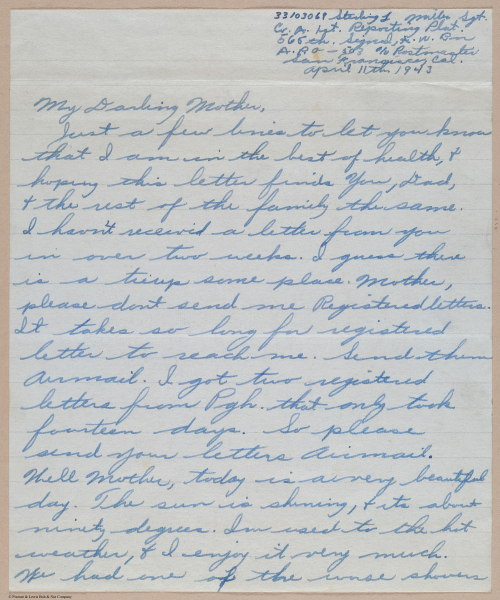 33103069 Sterling L Miles, Sgt.
Co. A. 1st. Reporting Plat.
566th. Signal A. W. Bn
A.P.O - 503 % Postmaster
San Francisco, Cal.
April 11th 1943
My Darling Mother,
Just a few lines to let you know
that I am in the best of health, &
hoping this letter finds You, Dad,
& the rest of the family the same.
I havn't received a letter from you
in over two weeks. I guess there
is a tieup some place. Mother,
please dont send me Registered letters.
It takes so long for registered
letter to reach me. Send them
Airmail. I got two registered
letters from Pgh. that only took
fourteen days. So please
send your letters Airmail.
Well Mother, today is a very beautiful
day. The sun is shining, & its about
ninety degrees. Im used to the hot
weather, & I enjoy it very much.
We had one of the worse showers